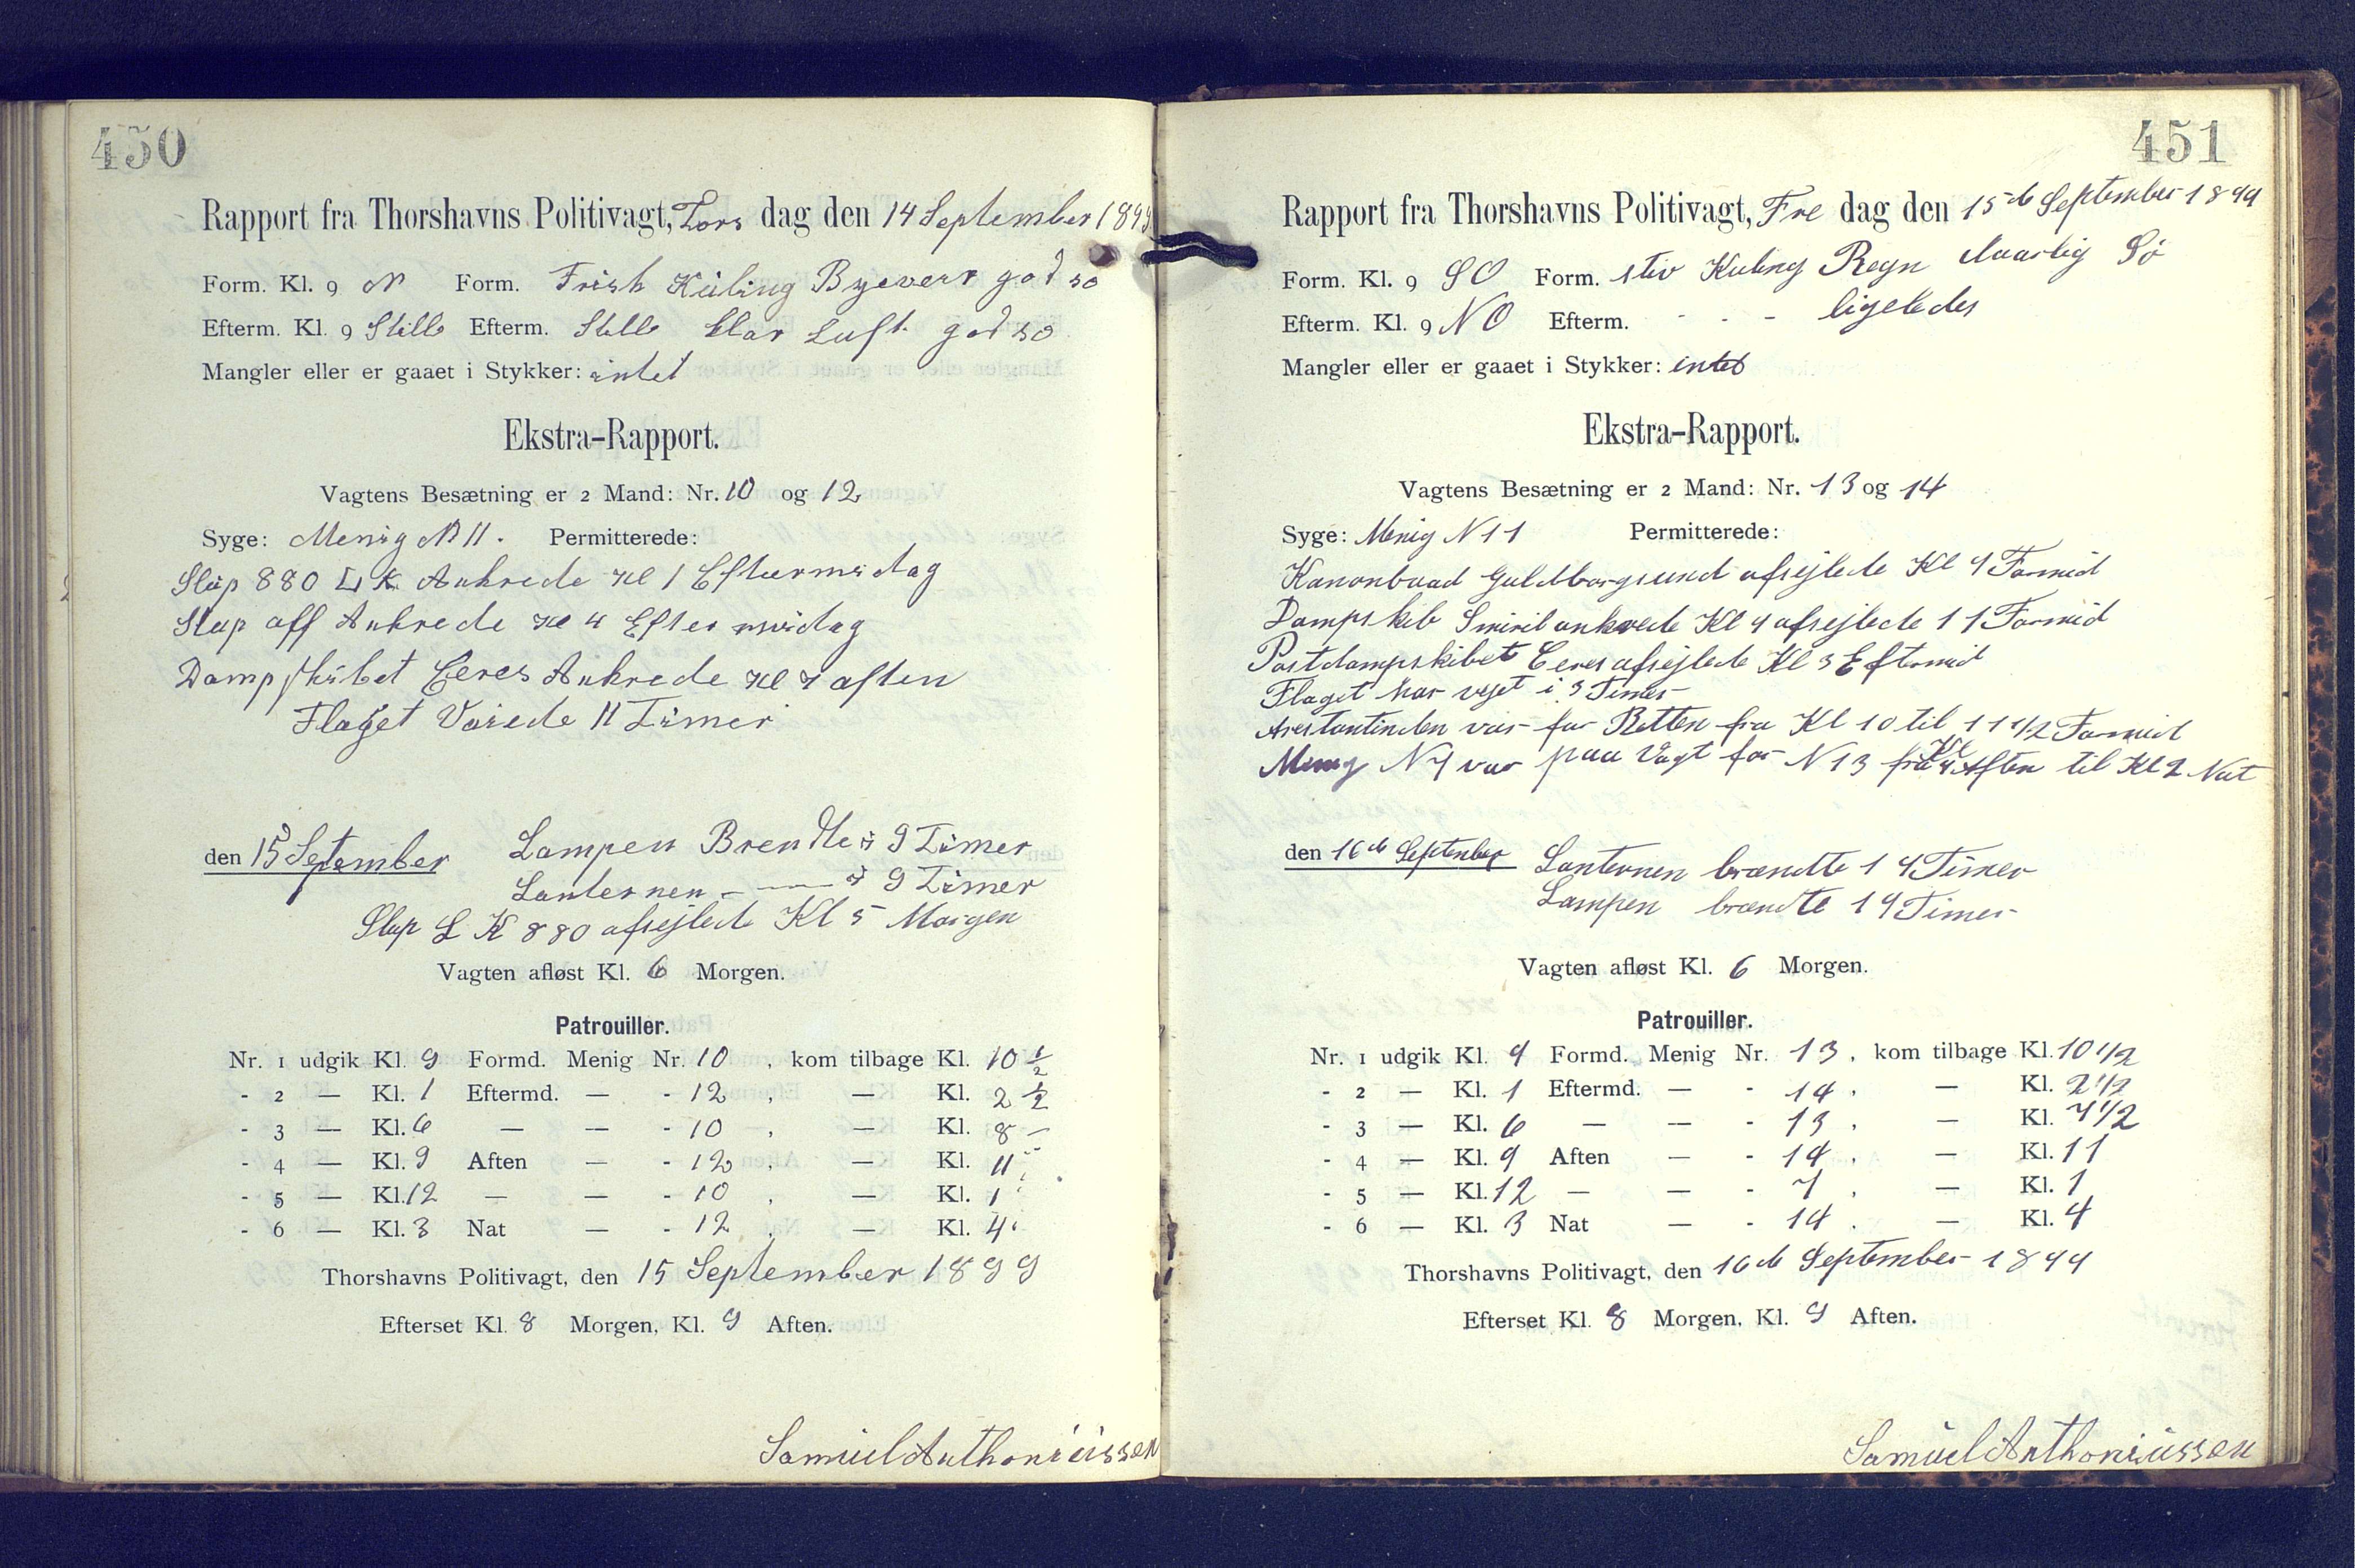 450
Rapport fra Thorshavns Politivagt, Tors dag den 14 September 1899
Form. Kl. 9 N Form. Frisk Kùling Bygeveir god sø
Efterm. Kl. 9 Stille Efterm. Stille klar Luft god sø
Mangler eller er gaaet i Stykker: intet
Ekstra-Rapport.
Vagtens Besætning er 2 Mand: Nr. 10 og 12
Syge: Menig N 11. Permitterede:
Slup 880 L K Ankrede Kl 1 Eftermidag
Slup off Ankrede Kl 4 Eftermidag
Dampskibet Ceres Ankrede Kl 7 aften
Flaget Vaiede 11 Timer
den 15 September Lampen Brendte i 9 Timer
Lanternen - — i 9 Timer
Slup L K 880 afsejlede Kl 5 Morgen
Vagten afløst Kl. 6 Morgen.
Patrouiller.
Nr. 1 udgik Kl. 9 Formd. Menig Nr. 10, kom tilbage Kl. 10 1/2
- 2 — Kl. 1 Eftermd. — - 12, — Kl. 2 1/2
- 3 — Kl. 6 — — - 10, — Kl. 8 -
- 4 — Kl. 9 Aften — - 12, — Kl. 11
- 5 — Kl. 12 — — - 10, — Kl. 1
- 6 — Kl. 3 Nat — - 12, — Kl. 4
Thorshavns Politivagt, den 15 September 1899
Efterset Kl. 8 Morgen, Kl. 9 Aften.
Samùel Anthoniùssen
451
Rapport fra Thorshavns Politivagt, Fre dag den 15de September 1899
Form. Kl. 9 SO Form. stiv Kuling Regn daarlig Sø
Efterm. Kl. 9 NO Efterm. - - - ligeledes
Mangler eller er gaaet i Stykker: intet
Ekstra-Rapport.
Vagtens Besætning er 2 Mand: Nr. 13 og 14
Syge: Menig N 11 Permitterede:
Kanonbaad Guldborgsund afsejlede Kl 9 Formid
Dampskib Smiril ankrede Kl 9 afsejlede 11 Formid
Postdampskibet Ceres afsejlede Kl 3 Eftermid
Flaget har vejet i 3 Timer
Arestantinden var for Retten fra Kl 10 til 11 1/2 Formid
Menig N 7 var paa Vagt for N 13 fra Kl 9 Aften til Kl 2 Nat
den 16de September Lanternen brændte 14 Timer
Lampen brændte 14 Timer
Vagten afløst Kl. 6 Morgen.
Patrouiller.
Nr. 1 udgik Kl. 9 Formd. Menig Nr. 13, kom tilbage Kl. 10 1/2
- 2 — Kl. 1 Eftermd. — - 14, — Kl. 2 1/2
- 3 — Kl. 6 — — - 13, — Kl. 7 1/2
- 4 — Kl. 9 Aften — - 14, — Kl. 11
- 5 — Kl. 12 — — - 7, — Kl. 1
- 6 — Kl. 3 Nat — - 14. — Kl. 4
Thorshavns Politivagt, den 16de September 1899
Efterset Kl. 8 Morgen, Kl. 9 Aften.
Samùel Anthoniùssen